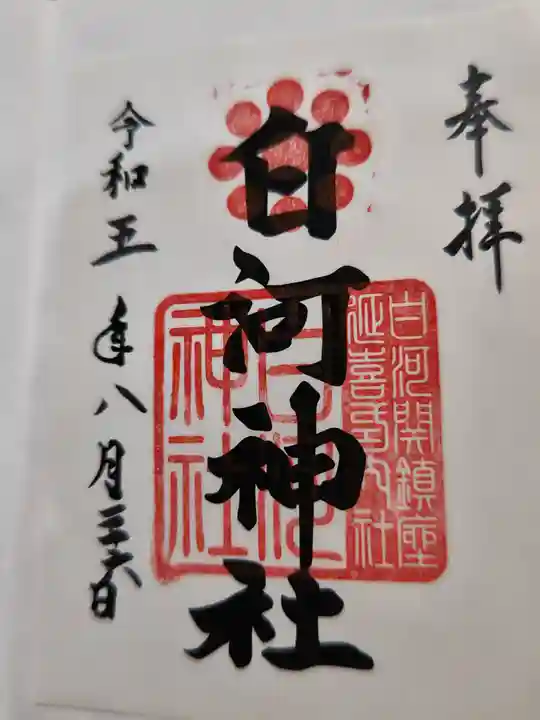 奉拝
白河関鎮座
延喜式内社
白河神社
白河
神社
令和五年八月二十六日